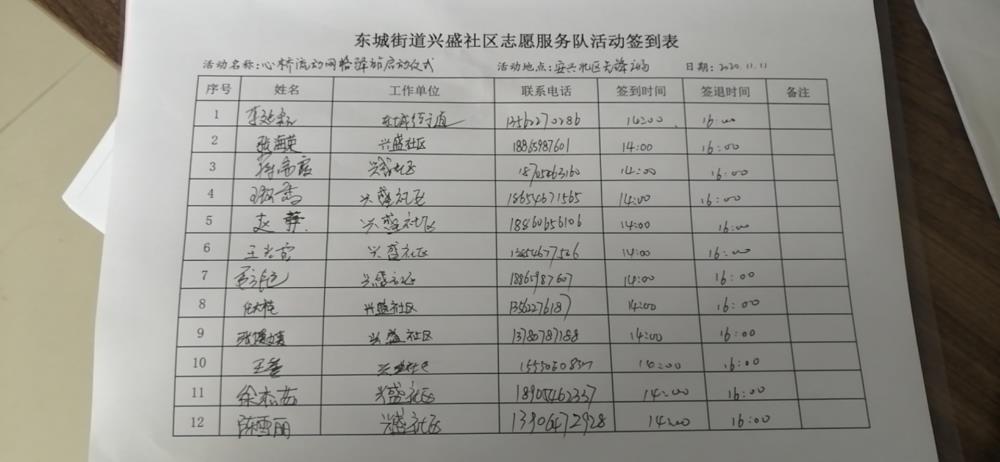 东城街道兴盛社区志愿服务队活动签到表
活动名称:心桥流动网格驿站启动仪式 活动地点:安兴北区 日期:2020.11.11
序号 姓名 工作单位 联系电话 签到时间 签退时间 备注
1 13562270286 14:00 16:00
2 张海英 兴盛社区 18865987601 14:00 16:00
3 兴盛社区 18705463160 14:00 16:00
4 兴盛社区 18654671565 14:00 16:00
5 赵静 兴盛社区 18860656106 14:00 16:00
6 兴盛社区 14:00 16:00
7 兴盛社区 18865987607 14:00 16:00
8 兴盛社区 14:00 16:00
9 张媛媛 兴盛社区 13780787188 14:00 16:00
10 王 兴盛社区 14:00 16:00
11 徐杰茹 兴盛社区 18905462337 14:00 16:00
12 陈雪丽 兴盛社区 13906472928 14:00 16:00